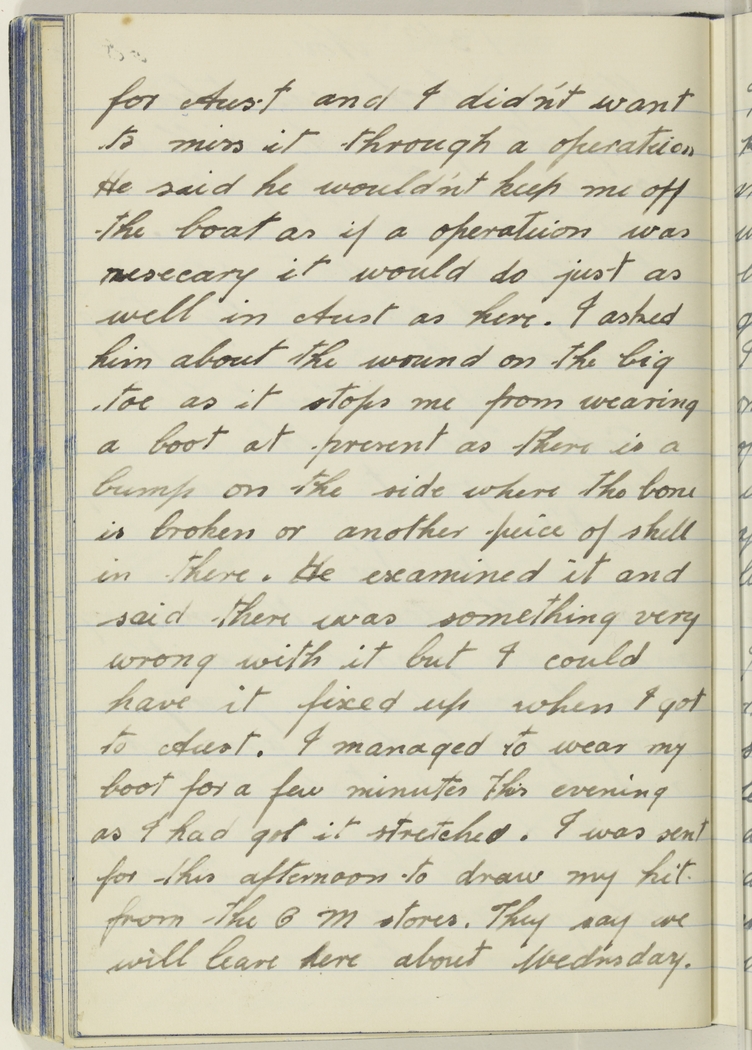 for Aust and I didn't want
to miss it through a operation
He said he wouldn't keep me off
the boat as if a operation was
nesecary it would do just as
well in Aust as here. I asked
him about the wound on the big
toe as it stops me from wearing
a boot at present as there is a
bump on the side where the bone
is broken or another peice of shell
in there. He examined it and
said there was something very
wrong with it but I could
have it fixed up when I got
to Aust. I managed to wear my
boot for a few minutes this evening
as I had got it stretched. I was sent
for this afternoon to draw my kit
from the Q M stores. They say we
will leave here about Wednsday.